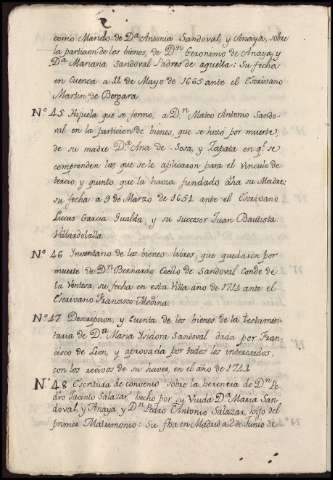 como Marido de Dª Antonia Sandoval y Anaya, sobre
la particion de los bienes, de Dⁿ Geronimo de Anaya y
Dª Mariana Sandoval Padres de aquella: Su fecha
en Cuenca a 12 de Mayo de 1665 ante el Escrivano
Martin de Bergara.
Nº 45 Hijuela que se formo, a Dⁿ Mateo Antonio Sando-
val en la particion de bienes, que se hizo por muerte,
de su madre Dª Ana de Sosa, y Zapata en qᵉ se
comprenden los que se le aplicaron para el Vinculo de
tercio y quinto que la havia fundado dha su Madre;
su fecha a 9 de Marzo de 1651 ante el Escrivano
Lucas Garcia Gualda, y su successor Juan Bautista
Nº 46 Inventario de los bienes libres que quedaron por
muerte de Dⁿ Bernardo Coello de Sandoval Conde de
la Ventosa, su fecha en esta Villa año de
el Escrivano Francisco Medina.
Nº 47 Descripcion, y cuenta de los bienes de la testamen-
taria de Dª Maria Ysidora Sandoval dada por Fran-
cisco de Leon, y aprovada por todos los interesados,
con los recivos de su haver, en el año de
Nº 48 Escritura de convenio sobre la herencia de Dⁿ Pe-
dro Jacinto Salazar, hecho por su Viuda Dª Maria San-
doval, y Anaya y Dⁿ Pedro Antonio Salazar, hijo del
primer Matrimonio: Su fha en Madrid a 2 de Junio de